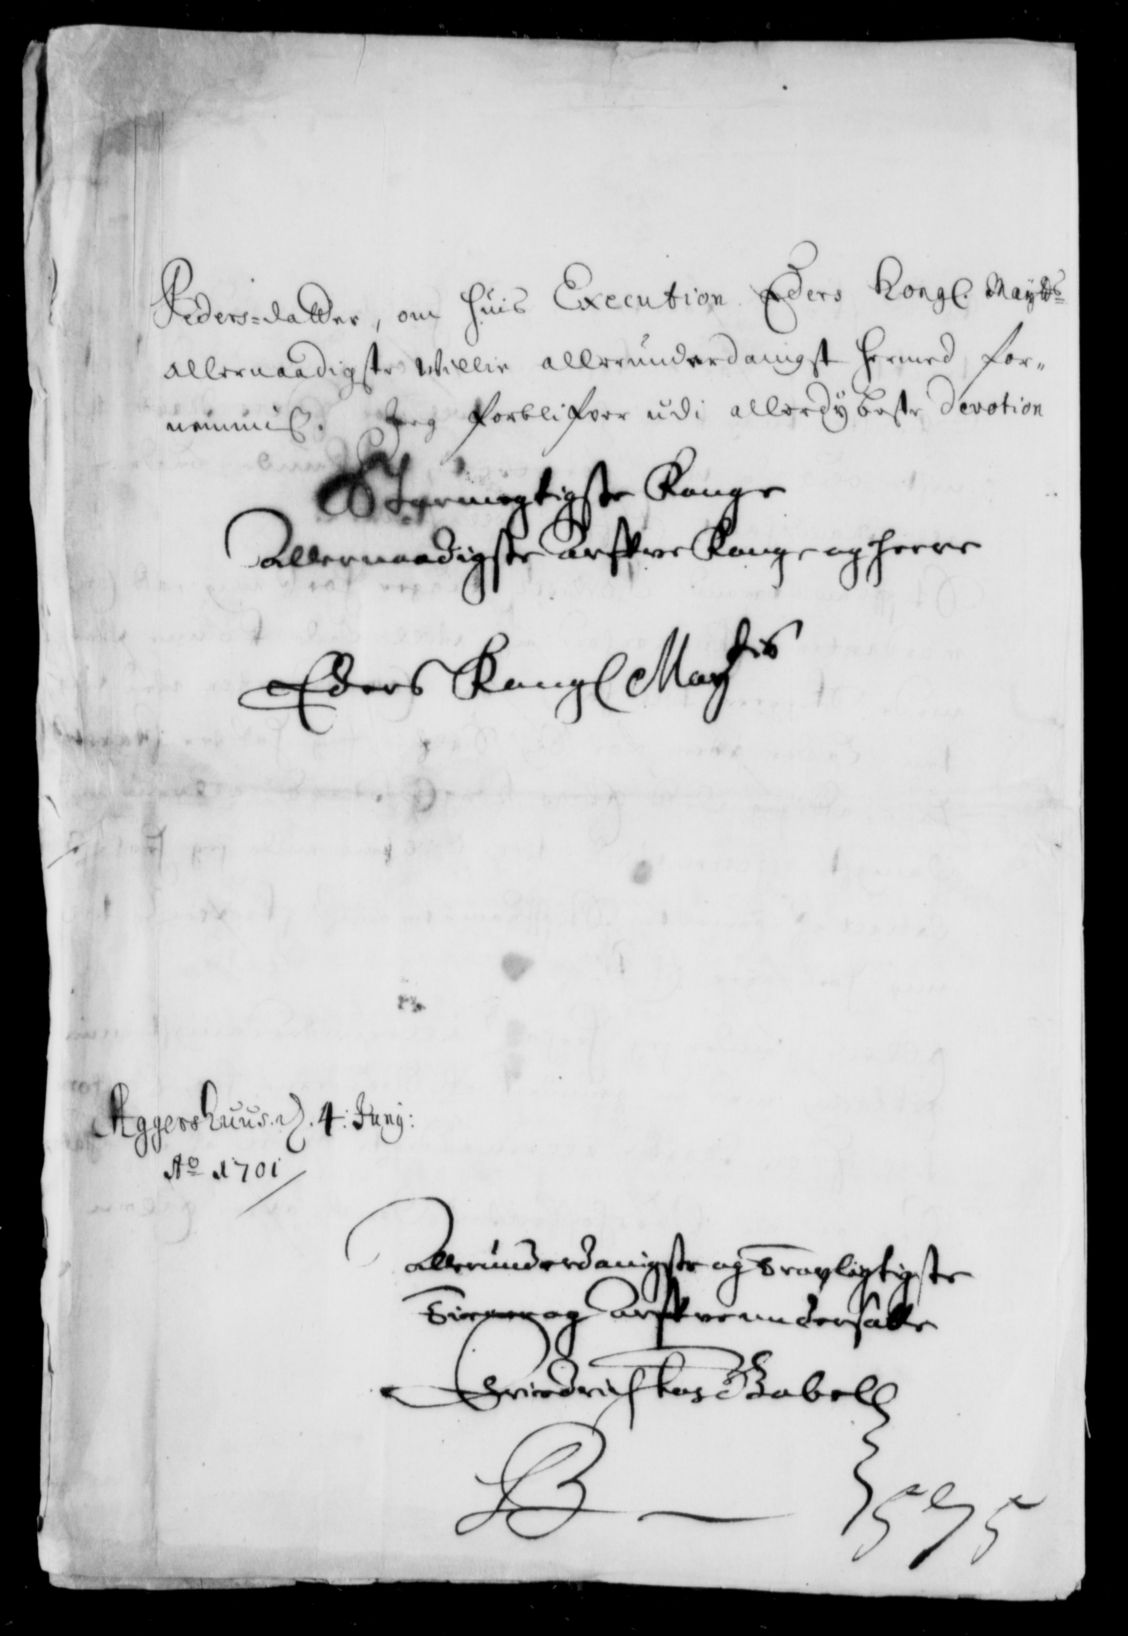 Peders-datter, om huis Execution Eders Kongl. Mayts
allernaadigste Willie allerunderdanigst hermed for-
nemmis. Jeg forblifver udi allerdybeste devotion
Stormegtigste Konge
Allernaadigste Arfve Konge og herre
Eders Kongl May:tts
Aggershuus. d. 4: Junij:
Ao 1701
Allerunderdanigste og
Tiener og Arfve undersatte
Friedrich Gabell
575